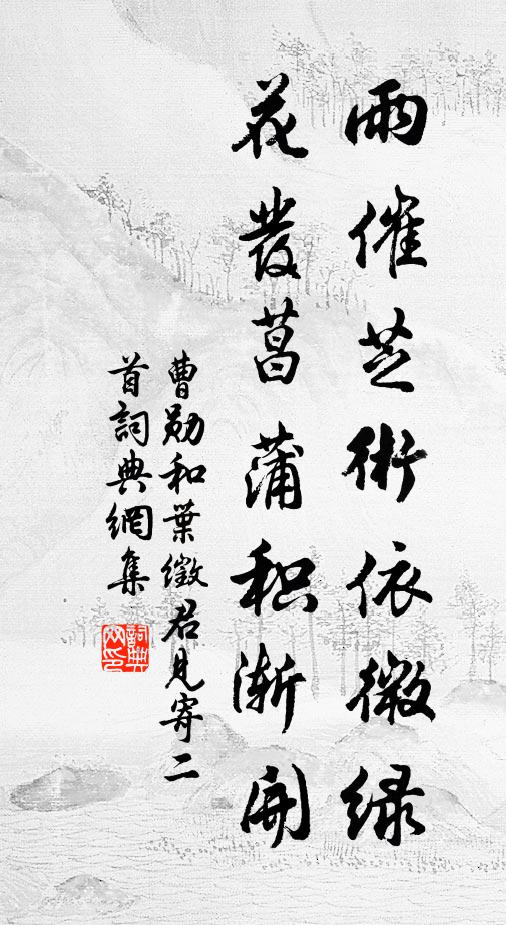 雨催芝術依微绿
花發菖蒲积渐開
曹勛和葉徵君見寄二
首詞典網集
詞典网印